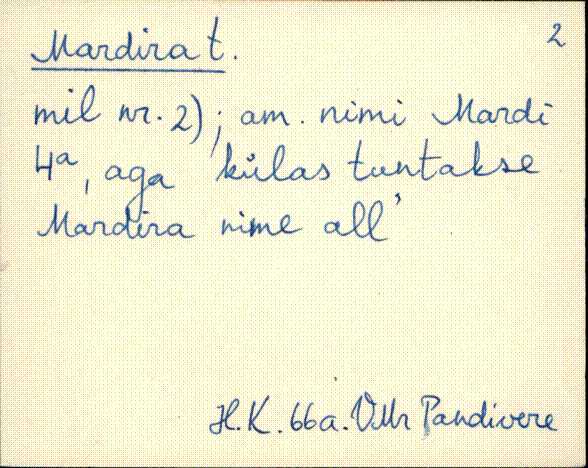 2
Mardira t.
mil nr. 2); am. nimi Mardi
4ª, aga külas tuntakse
Mardira nime all’
H.K. 66a. VMr Pandivere